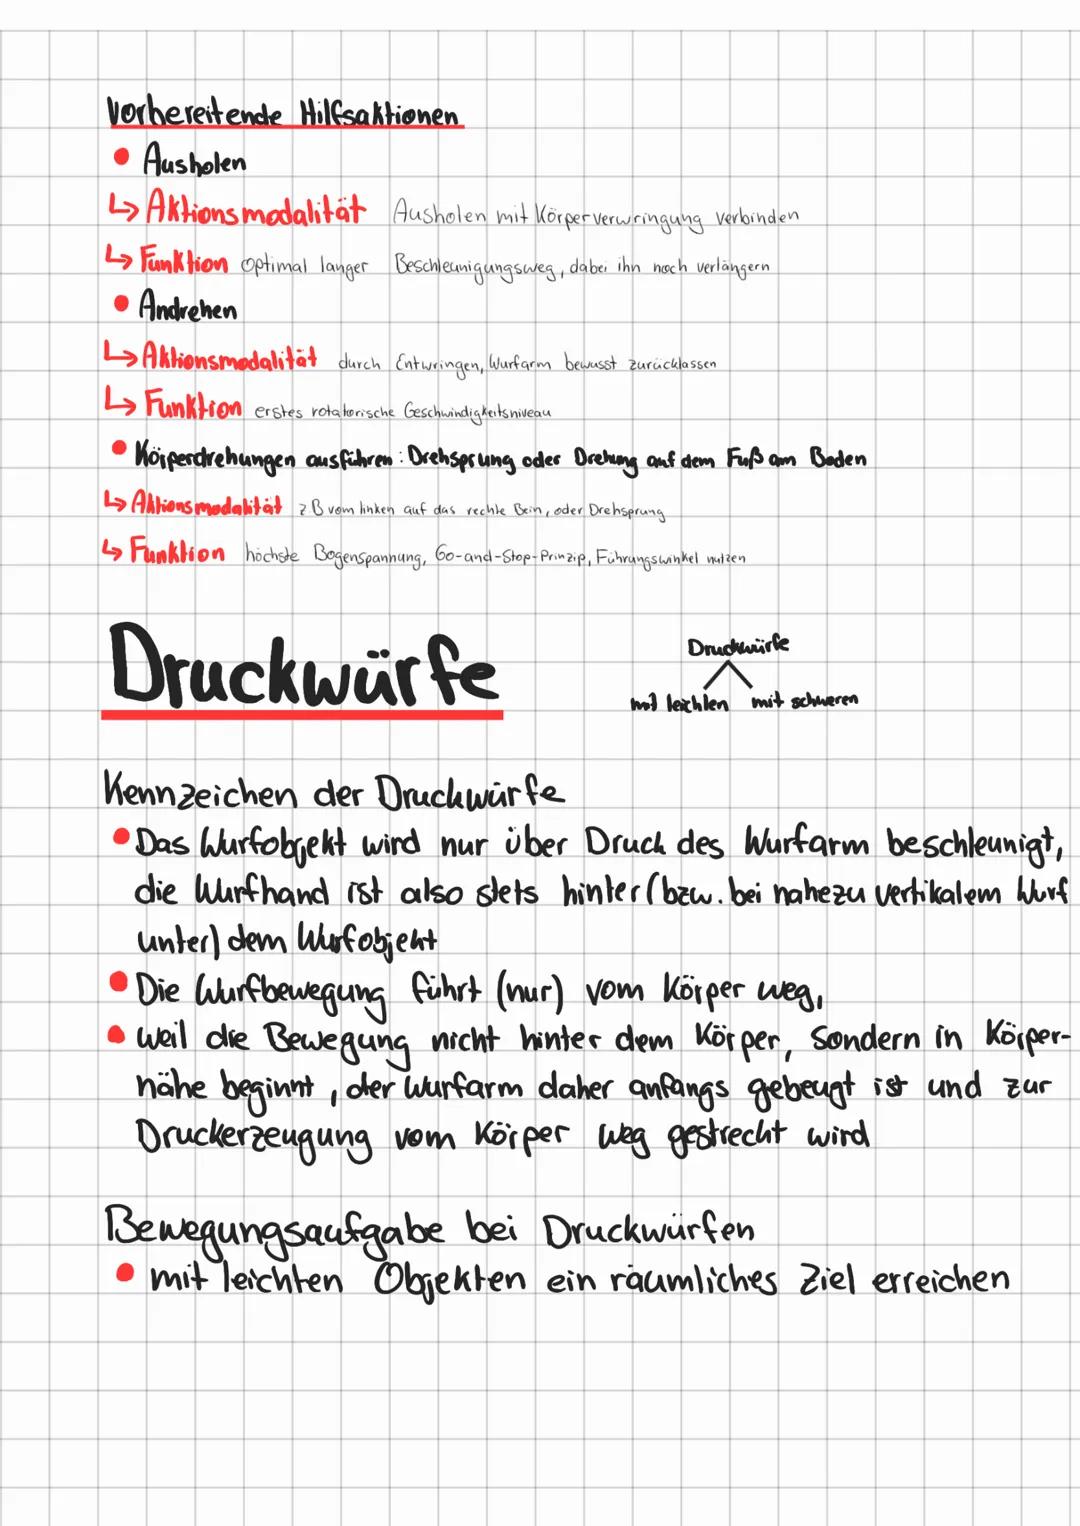 Vorbereitende Hilfsaktionen
• Ausholen
↳ Aktionsmodalität Ausholen mit Körperverwringung verbinden
↳ Funktion optimal langer Beschleunigungsweg, dabei ihn noch verlängern
• Andrehen
↳ Aktionsmodalität durch Entwringen, Wurfarm bewusst zurücklassen
↳ Funktion erstes rotatorische Geschwindigkeitsniveau
• Körperdrehungen ausführen: Drehsprung oder Drehung auf dem Fuß am Boden
↳ Aktionsmodalität z B vom linken auf das rechte Bein, oder Drehsprung
↳ Funktion höchste Bogenspannung, Go-and-Stop-Prinzip, Führungswinkel nutzen
Druckwürfe
Druckwürfe
mit leichten mit schweren
Kennzeichen der Druckwürfe
• Das Wurfobjekt wird nur über Druck des Wurfarm beschleunigt,
die Wurfhand ist also stets hinter (bzw. bei nahezu vertikalem Wurf
unter) dem Wurfobjekt
• Die Wurfbewegung führt (nur) vom Körper weg,
• weil die Bewegung nicht hinter dem Körper, sondern in Körper-
nähe beginnt, der Wurfarm daher anfangs gebeugt ist und zur
Druckerzeugung vom Körper weg gestrecht wird
Bewegungsaufgabe bei Druckwürfen
• mit leichten Objekten ein räumliches Ziel erreichen